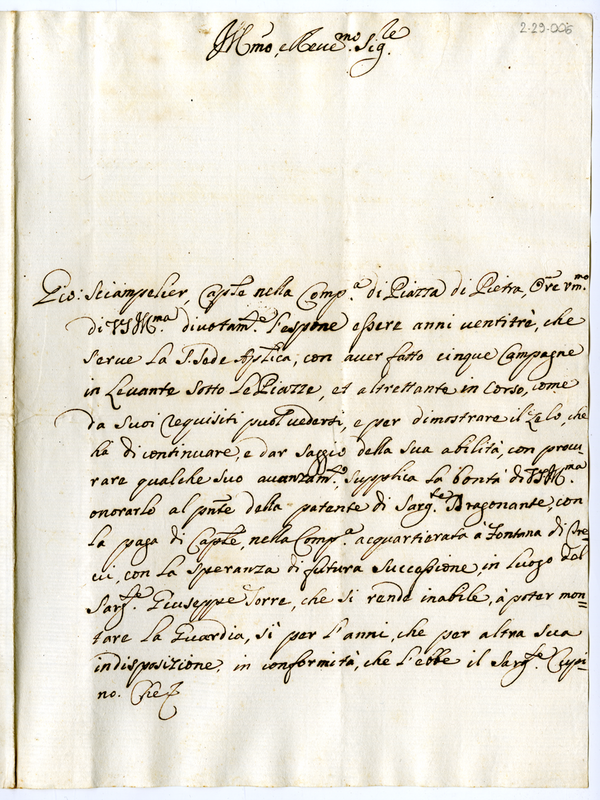 2-29-006
Illmo, e Reuemo. Sigle
Gio: Sciampelier, Caple nella Compa. di Piazza di Pietra, Ore vmo
di VS Illma. diuotame. l'espone essere anni ventitrè, che
serue la S. Sede Aplica, con auer fatto cinque Campagne
in Leuante sotto le Piazze, et altrettante in Corso, come
da suoi requisiti puol uedersi, e per dimostrare il Zelo, che
ha di continuare, e dar saggio della sua abilità, con procu
rare qualche suo auanzamto. supplica la bontà di VS Illma.
onorarlo al pnte della patente di Sargle. Dragonante, con
la paga di Caple, nella Compa. acquartierata à Fontana di Tre=
ui, con la speranza di futura successione, in luogo dal
Sargte. Giuseppe Torre, che si rende inabile, à poter mon=
tare la Guardia, sì per l'anni, che per altra sua
indisposizione, in conformità, che l'ebbe il Sargte. Cupi=
no. Che